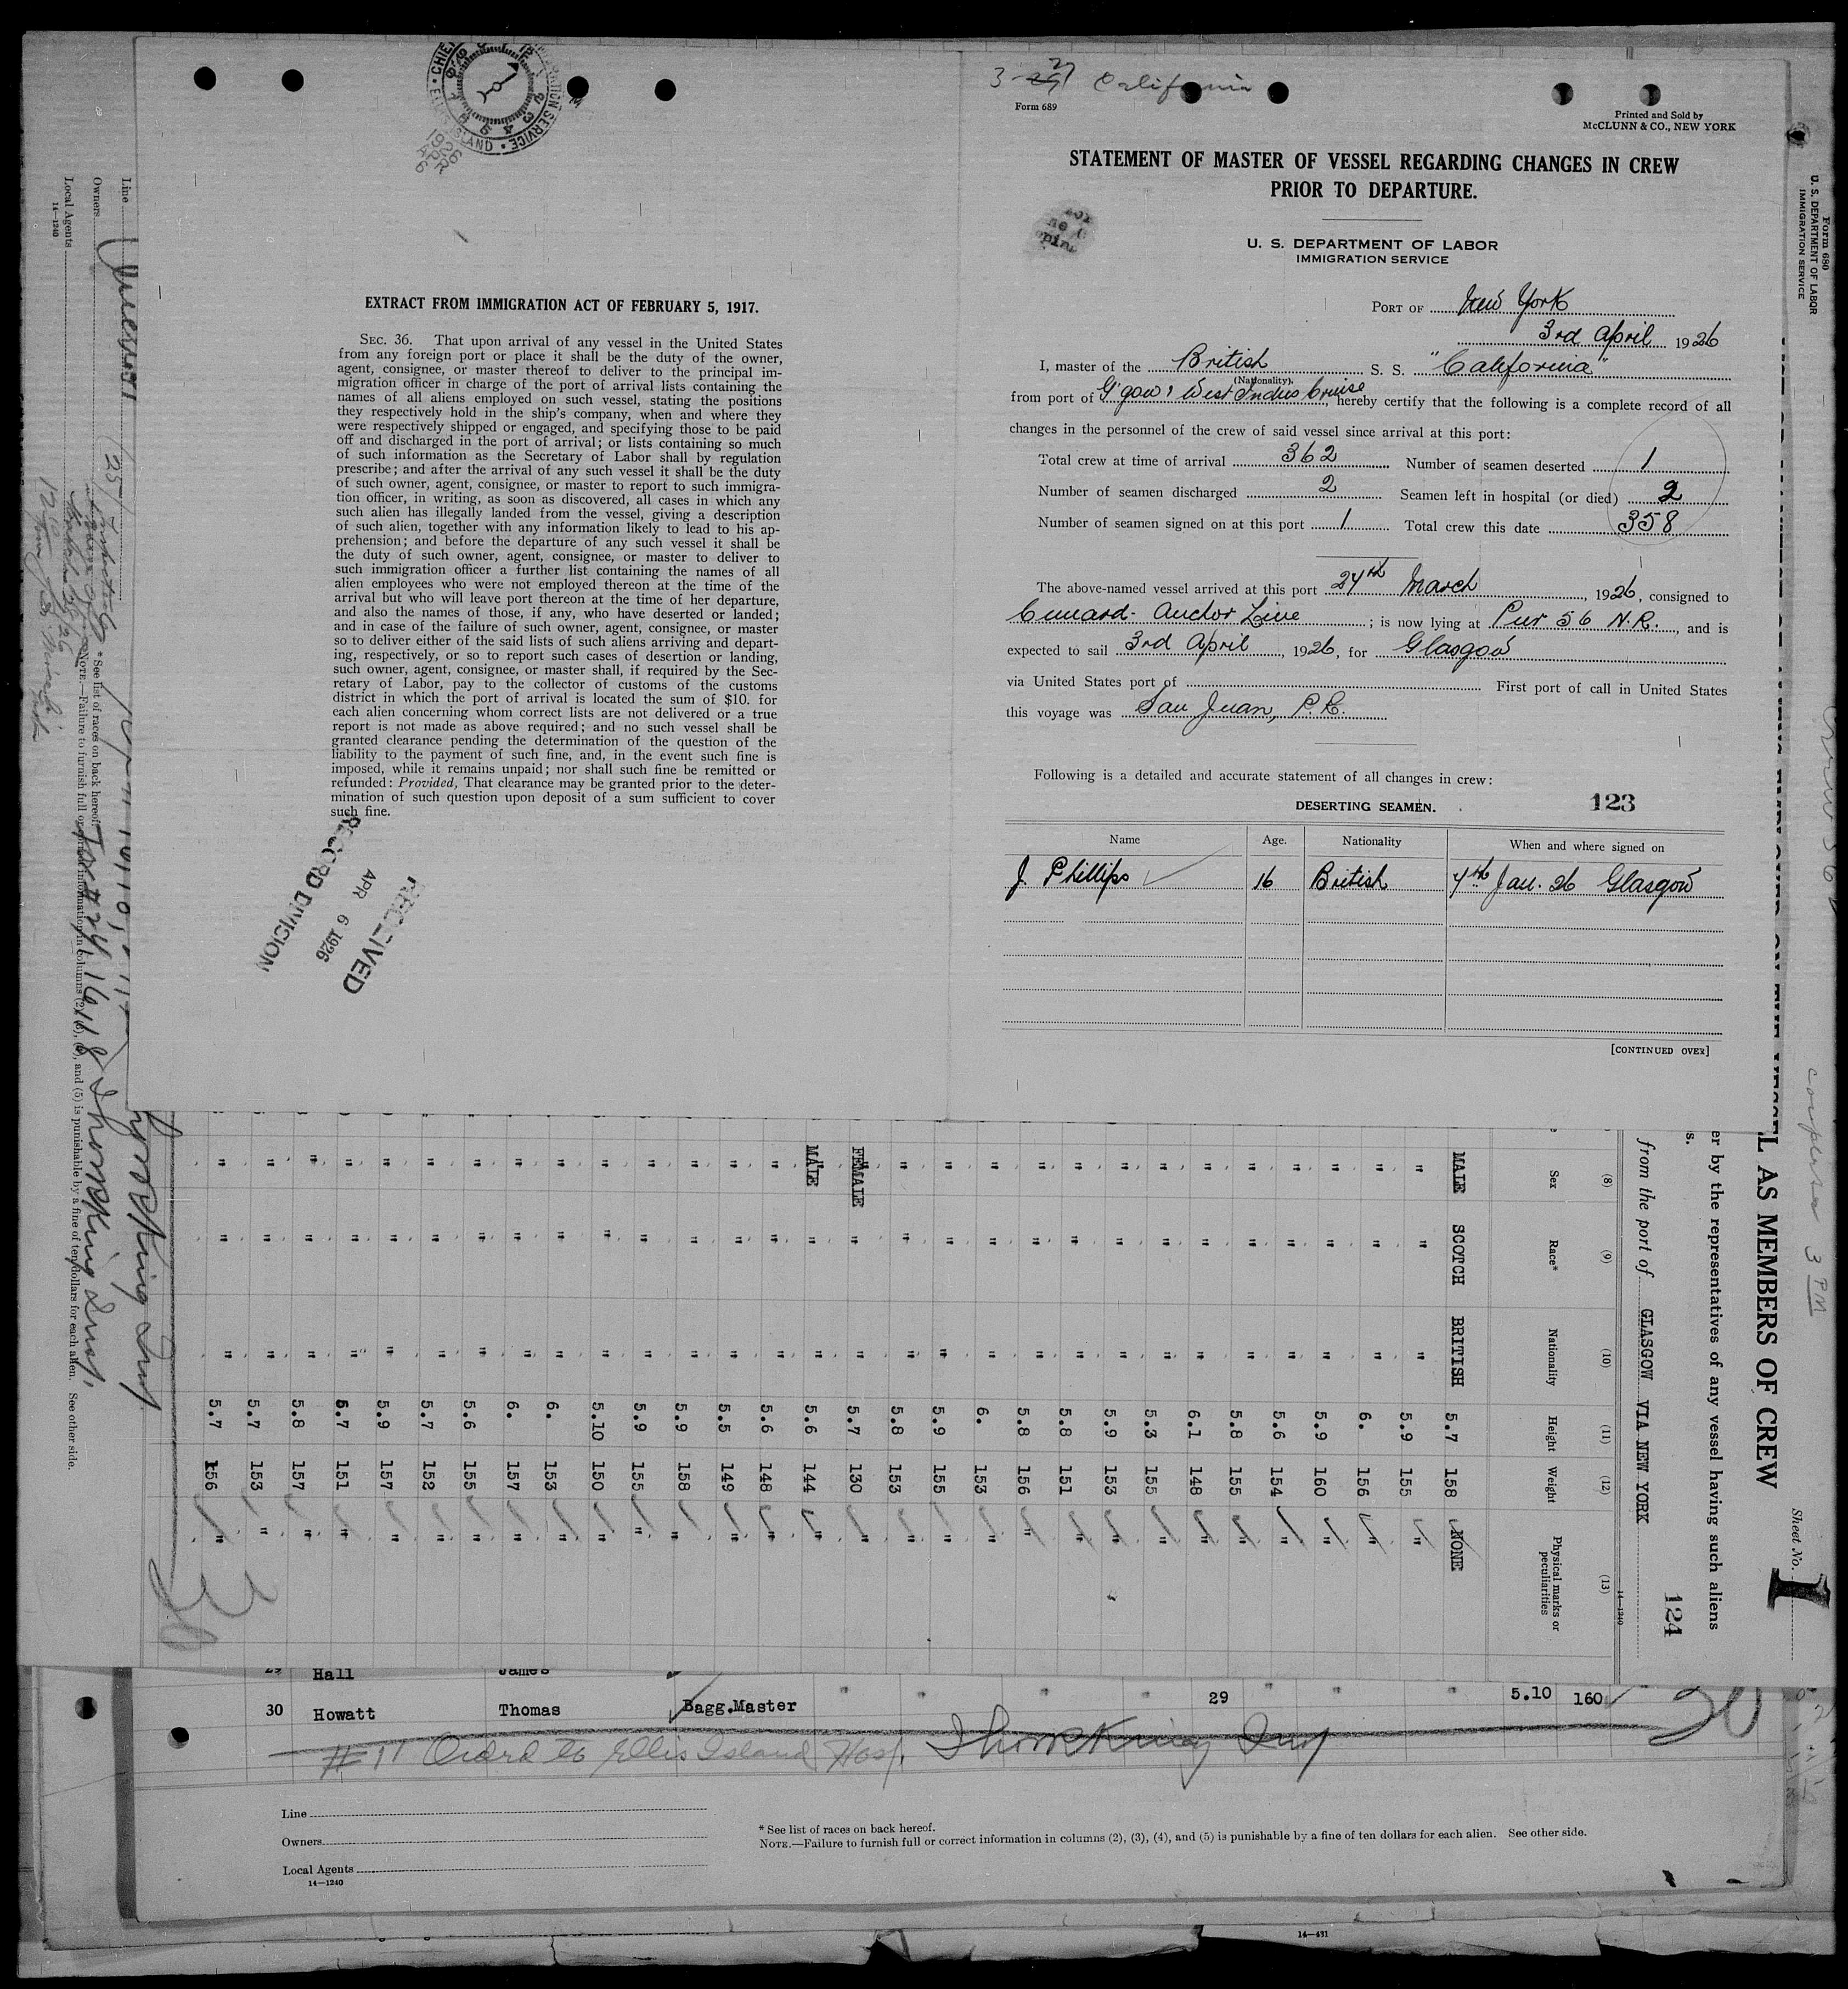 CHIEF
ELLIS ISLAND
IMMIGRATION SERVICE
1926
APR
6
EXTRACT FROM IMMIGRATION ACT OF FEBRUARY 5, 1917.
SEC. 36. That upon arrival of any vessel in the United States
from any foreign port or place it shall be the duty of the owner,
agent, consignee, or master thereof to deliver to the principal im-
migration officer in charge of the port of arrival lists containing the
names of all aliens employed on such vessel, stating the positions
they respectively hold in the ship's company, when and where they
were respectively shipped or engaged, and specifying those to be paid
off and discharged in the port of arrival; or lists containing so much
of such information as the Secretary of Labor shall by regulation
prescribe; and after the arrival of any such vessel it shall be the duty
of such owner, agent, consignee, or master to report to such immigra-
tion officer, in writing, as soon as discovered, all cases in which any
such alien has illegally landed from the vessel, giving a description
of such alien, together with any information likely to lead to his ap-
prehension; and before the departure of any such vessel it shall be
the duty of such owner, agent, consignee, or master to deliver to
such immigration officer a further list containing the names of all
alien employees who were not employed thereon at the time of the
arrival but who will leave port thereon at the time of her departure,
and also the names of those, if any, who have deserted or landed;
and in case of the failure of such owner, agent, consignee, or master
so to deliver either of the said lists of such aliens arriving and depart-
ing, respectively, or so to report such cases of desertion or landing,
such owner, agent, consignee, or master shall, if required by the Sec-
retary of Labor, pay to the collector of customs of the customs
district in which the port of arrival is located the sum of $10. for
each alien concerning whom correct lists are not delivered or a true
report is not made as above required; and no such vessel shall be
granted clearance pending the determination of the question of the
liability to the payment of such fine, and, in the event such fine is
imposed, while it remains unpaid; nor shall such fine be remitted or
refunded: Provided, That clearance may be granted prior to the deter-
mination of such question upon deposit of a sum sufficient to cover
such fine.
RECEIVED
APR 6 1926
RECORD DIVISION
3-27 California
Form 689
Printed and Sold by
McCLUNN & CO., NEW YORK
STATEMENT OF MASTER OF VESSEL REGARDING CHANGES IN CREW
PRIOR TO DEPARTURE.
U. S. DEPARTMENT OF LABOR
IMMIGRATION SERVICE
PORT OF New York
3rd April 1926
I, master of the British S. S. "California"
(Nationality)
from port of G'gow & West Indies Cruise, hereby certify that the following is a complete record of all
changes in the personnel of the crew of said vessel since arrival at this port:
Total crew at time of arrival 362 Number of seamen deserted 1
Number of seamen discharged 2 Seamen left in hospital (or died) 2
Number of seamen signed on at this port 1 Total crew this date 358
The above-named vessel arrived at this port 24th March, 1926, consigned to
Cunard-Anchor Line; is now lying at Pier 56 N.R., and is
expected to sail 3rd April, 1926, for Glasgow
via United States port of First port of call in United States
this voyage was San Juan, P.R.
Following is a detailed and accurate statement of all changes in crew:
DESERTING SEAMEN. 123
Name Age. Nationality When and where signed on
J. Phillips 16 British 4th Jan. 26 Glasgow
[CONTINUED OVER]
Form 680
U. S. DEPARTMENT OF LABOR
IMMIGRATION SERVICE
Sheet No. 1
L AS MEMBERS OF CREW
er by the representatives of any vessel having such aliens
s.
from the port of GLASGOW VIA NEW YORK
124
14—1240
(8) (9) (10) (11) (12) (13)
Sex Race* Nationality Height Weight Physical marks or peculiarities
MALE SCOTCH BRITISH 5.7 158 NONE
" " " 5.9 155 "
" " " 6. 156 "
" " " 5.9 160 "
" " " 5.6 154 "
" " " 5.8 155 "
" " " 6.1 148 "
" " " 5.3 155 "
" " " 5.9 153 "
" " " 5.8 151 "
" " " 5.8 156 "
" " " 6. 153 "
" " " 5.9 155 "
" " " 5.8 153 "
FEMALE " " 5.7 130 "
MALE " " 5.6 144 "
" " " 5.6 148 "
" " " 5.5 149 "
" " " 5.9 158 "
" " " 5.9 155 "
" " " 5.10 150 "
" " " 6. 153 "
" " " 6. 157 "
" " " 5.6 155 "
" " " 5.7 152 "
" " " 5.9 157 "
" " " 5.7 151 "
" " " 5.8 157 "
" " " 5.7 153 "
" " " 5.7 156 "
Line
Owners
Local Agents
14—1240
* See list of races on back hereof.
NOTE.—Failure to furnish full or correct information in columns (2), (3), (4), and (5) is punishable by a fine of ten dollars for each alien. See other side.
29 Hall James
30 Howatt Thomas Bagg.Master " " " " 29 " " " 5.10 160
#11 Ordrd to Ellis Island Hosp.
Line
Owners
Local Agents
14—1240
* See list of races on back hereof.
NOTE.—Failure to furnish full or correct information in columns (2), (3), (4), and (5) is punishable by a fine of ten dollars for each alien. See other side.
14—431